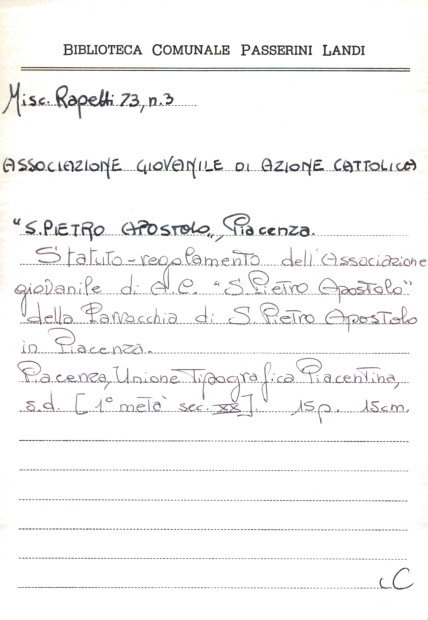 BIBLIOTECA COMUNALE PASSERINI LANDI
Misc. Rapetti 73, n.3
ASSOCIAZIONE GIOVANILE DI AZIONE CATTOLICA
"S. PIETRO APOSTOLO", Piacenza.
Statuto-regolamento dell'Associazione
giovanile di A.C. "S. Pietro Apostolo"
della Parracchia di S. Pietro Apostolo
in Piacenza.
Piacenza, Unione Tipografica Piacentina,
s.d. [1° metà sec. XX]. 15p. 15cm.